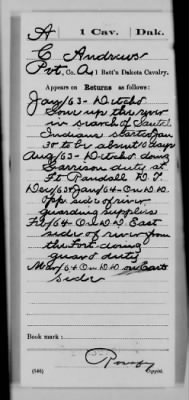 A 1 Cav. Dak.
C Andrews
Pvt., Co. A, 1 Batt'n Dakota Cavalry.
Appears on Returns as follows:
Jany/63 - D. Mtchs
Tour up the river
in search of Santee
Indians started Jan
30 to be about 10 days
Aug/63 - Detchd. doing
Garrison duty at
Ft Randall D.T.
Dec/63 & Jany/64 - On D.D.
Opp. side of river
guarding supplies
Feb/64 On D.D. East
side of river from
the Fort doing
guard duty
Mar/64 On D.D. on East
side
Book mark:
(546) Copyist.